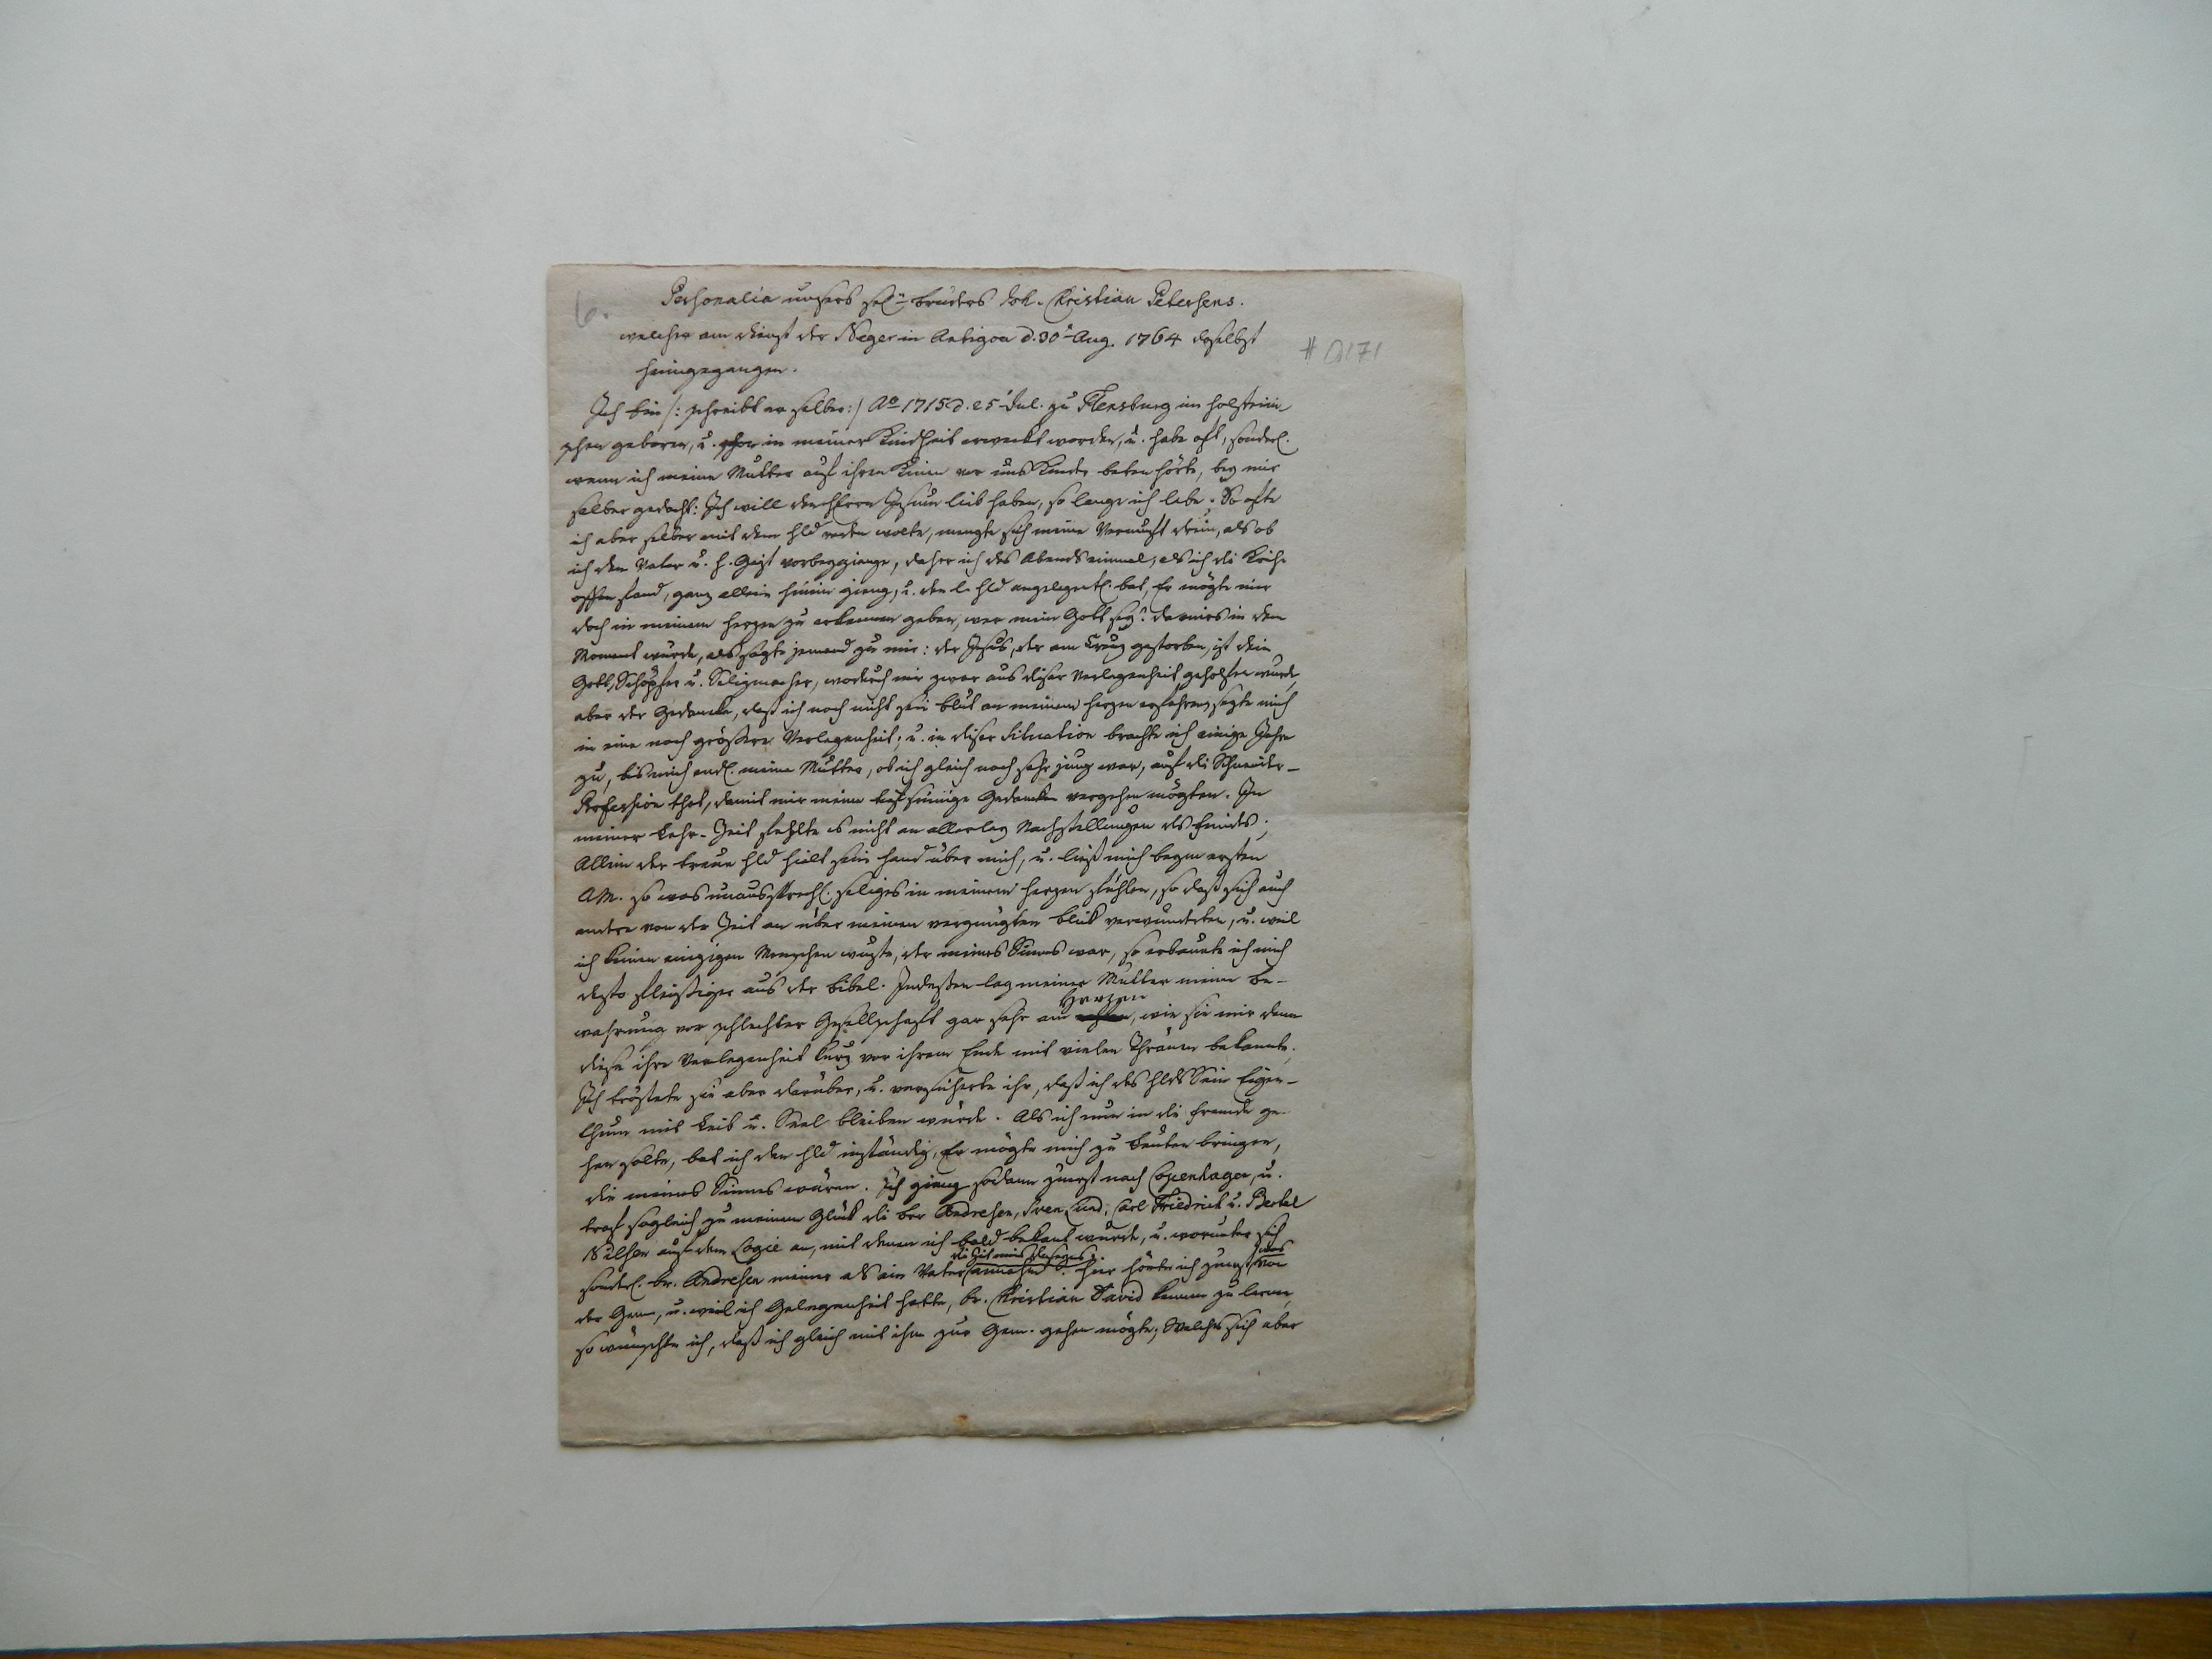 6.
Personalia unsers sel.n Bruders Joh. Christian Petersens.
welcher am Dienst der Neger in Antigoa d. 30t Aug. 1764 daselbst
heimgegangen.
# 0171
Ich bin /: schreibt er selber :/ Ao 1715 d. 25t Jul. zu Flensburg im Holsteini-
schen geboren, u. schon in meiner Kindheit erweckt worden, u. habe oft, sonderl.
wenn ich meine Mutter auf ihren Knien vor uns Kinder beten hörte, bey mir
selber gedacht: Ich will den Herrn Jesum lieb haben, so lange ich lebe. So ofte
ich aber selber mit dem Hld reden wolte, mengte sich meine Vernunft drein, als ob
ich den Vater u. H. Geist vorbeygienge, daher ich des Abends einmal, als ich die Kirche
offen fand, ganz allein hinein gieng, u. den l. Hld angelegentl. bat, Er mögte mir
doch in meinem Herzen zu erkennen geben, wer mein Gott sey? da mirs in dem
Moment wurde, als sagte jemand zu mir: der Jesus, der am Creuz gestorben, ist dein
Gott, Schöpfer u. Seligmacher, wodurch mir zwar aus dieser Verlegenheit geholfen wurde,
aber der Gedancke, daß ich noch nicht sein Blut an meinem Herzen erfahren, sezte mich
in eine noch größere Verlegenheit; u. in dieser Situation brachte ich einige Jahre
zu, bis mich endl. meine Mutter, ob ich gleich noch sehr jung war, auf die Schneider-
Profession that, damit mir meine tiefsinnige Gedancken vergehen mögten. In
meiner Lehr-Zeit fehlte es nicht an allerley Nachstellungen des Feindes;
Allein der treue Hld hielt seine Hand über mich, u. ließ mich beym ersten
AM. so was unaussprechl. seliges in meinem Herzen fühlen, so daß sich auch
andre von der Zeit an über meinen vergnügten Blick verwunderten, u. weil
ich keinen einzigen Menschen wuste, der meines Sinnes war, so erbaute ich mich
desto fleißiger aus der Bibel. Indeßen lag meiner Mutter meine Be-
wahrung vor schlechter Gesellschaft gar sehr am Herzen, wie sie mir denn
diese ihre Verlegenheit kurz vor ihrem Ende mit vielen Thränen bekannte.
Ich tröstete sie aber darüber, u. versicherte ihr, daß ich des Hlds Sein Eigen-
thum mit Leib u. Seel bleiben würde. Als ich nun in die Fremde ge-
hen solte, bat ich den Hld inständig, Er mögte mich zu Leuten bringen,
die meines Sinnes wären. Ich gieng sodann zuerst nach Copenhagen, u.
traf sogleich zu meinem Glück die Brr Andresen, Sven Lund, Carl Friedrich u. Bertel
Nilsen auf dem Logie an, mit denen ich bald bekant wurde, u. worunter sich
sonderl. Br. Andresen meiner als ein Vater die Zeit meines Daseyns annahm. Hier hörte ich zuerst was von
der Gem, u. weil ich Gelegenheit hatte, Br. Christian David kennen zu lernen,
so wünschte ich, daß ich gleich mit ihm zur Gem. gehen mögte; Welches sich aber